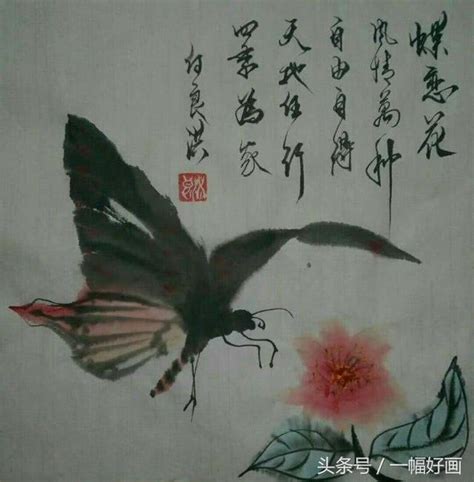 蝶恋花
风情万种
自由自得
天地任行
四季为家
付良洪
头条号／一幅好画